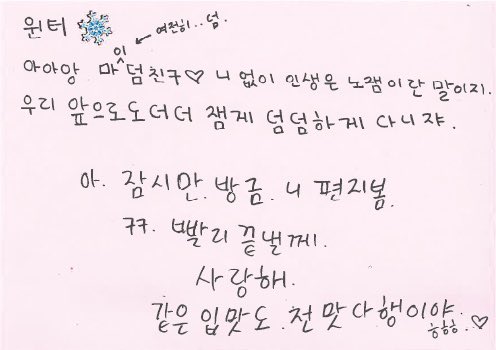 윈터
여전히.. 덤.
아아앙 마이덤친구♡ 니 없이 인생은 노잼이란 말이지.
우리 앞으로도더더 잼게 덤덤하게 다니쟈.
아. 잠시만. 방금. 니 편지봄.
ㄲㄲ. 빨리 끝낼께.
사랑해.
같은 입맛도. 천 맛다행이야.♡
흠흠흠.